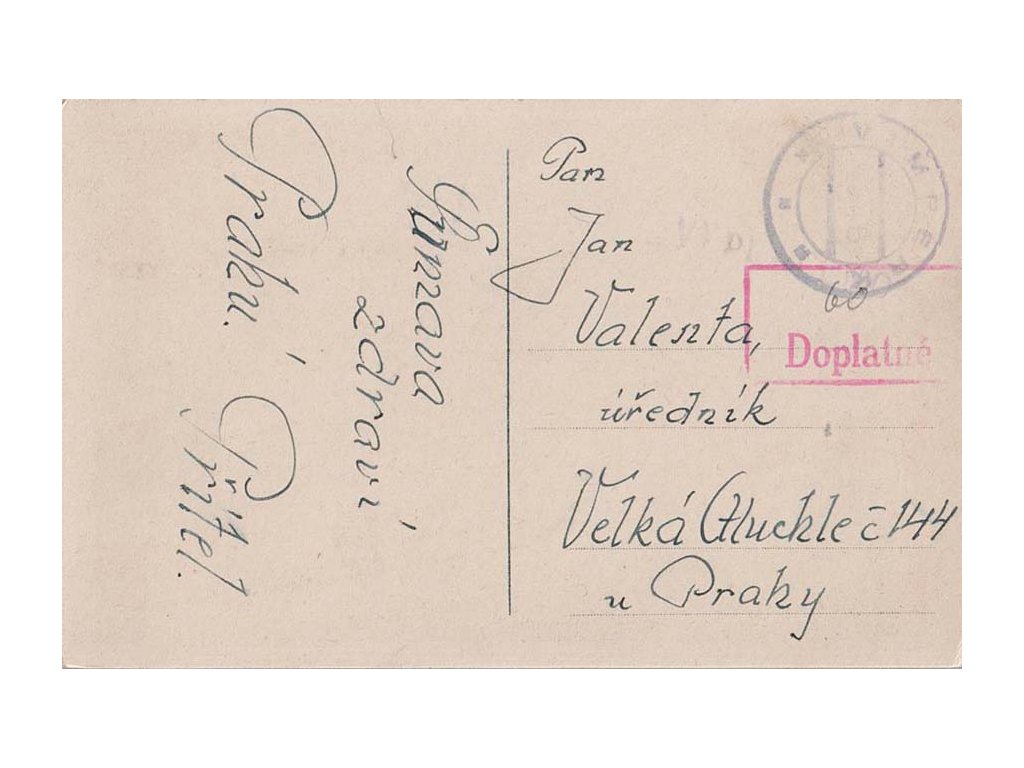 Šumava
zdraví
Prahu.
Přítel.
Pan
Jan
Valenta,
úředník
Velká Chuchle č 144
u Prahy
60
Doplatné